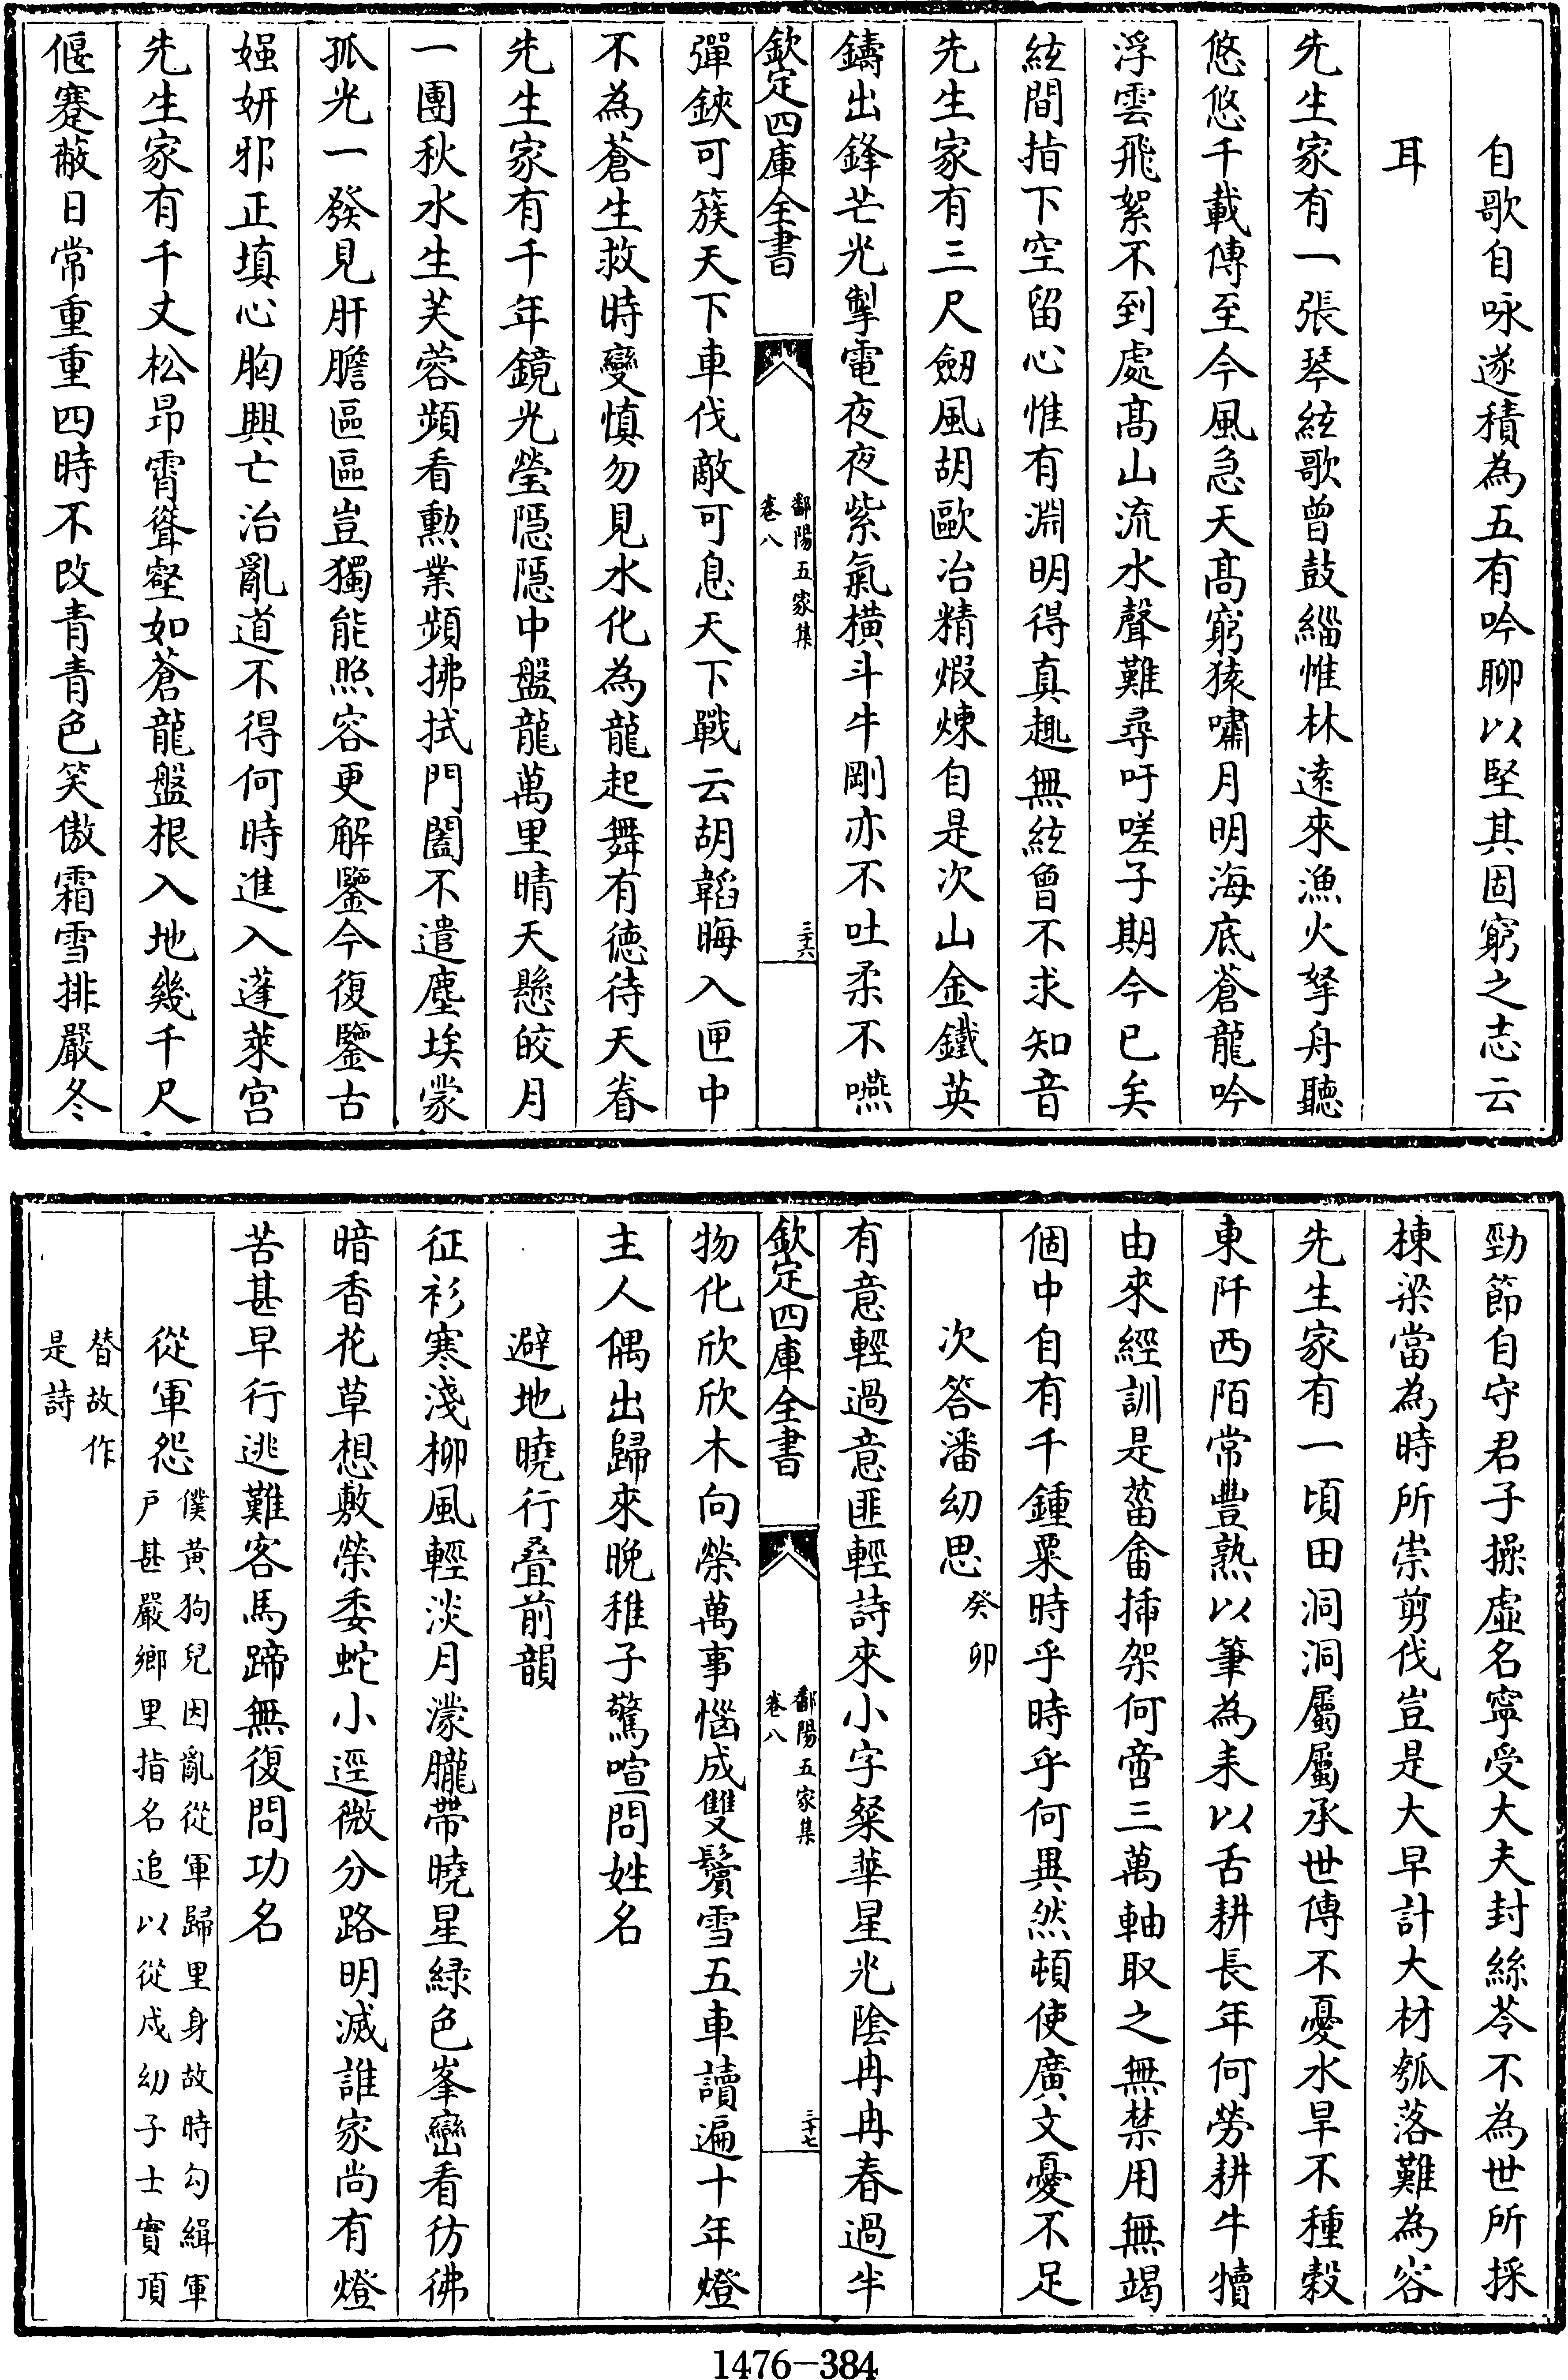 自歌自咏遂積為五有吟聊以堅其固窮之志云
耳
先生家有一張琴絃歌曾鼓緇惟林遠來漁火孥舟聽
悠悠千載傳至今風急天髙窮猿嘯月明海底蒼龍吟
浮雲飛絮不到處髙山流水聲難尋吁嗟子期今已矣
絃間指下空留心惟有淵明得真趣無絃曾不求知音
先生家有三尺劒風胡歐冶精煆煉自是次山金鐵英
鑄出鋒芒光掣電夜夜紫氣橫斗牛剛亦不吐柔不嚥
欽定四庫全書
鄱陽五家集
卷八
三十六
彈鋏可簇天下車伐敵可息天下戰云胡韜晦入匣中
不為蒼生救時變慎勿見水化為龍起舞有徳待天眷
先生家有千年鏡光瑩隠隠中盤龍萬里晴天懸皎月
一團秋水生芙蓉頻看勲業頻拂拭門闔不遣塵埃蒙
孤光一發見肝膽區區豈獨能照容更解鑒今復鑒古
媸妍邪正填心胸興亡治亂道不得何時進入蓬萊宫
先生家有千丈松昂霄聳壑如蒼龍盤根入地幾千尺
偃蹇蔽日常重重四時不改青青色笑傲霜雪排嚴冬
勁節自守君子操虛名寧受大夫封絲苓不為世所採
棟梁當為時所崇剪伐豈是大早計大材瓠落難為容
先生家有一頃田洞洞屬屬承世傳不憂水旱不種穀
東阡西陌常豐熟以筆為耒以舌耕長年何勞耕牛犢
由來經訓是菑畬揷架何啻三萬軸取之無禁用無竭
個中自有千鍾粟時乎時乎何異然頓使廣文憂不足
次答潘幼思癸卯
有意輕過意匪輕詩來小字粲華星光陰冉冉春過半
欽定四庫全書
鄱陽五家集
卷八
三十七
物化欣欣木向榮萬事惱成雙鬢雪五車讀遍十年燈
主人偶出歸來晚稚子驚喧問姓名
避地曉行疊前韻
征衫寒淺柳風輕淡月濛朧帶曉星緑色峯巒看彷彿
暗香花草想敷榮委蛇小逕微分路明滅誰家尚有燈
苦甚早行逃難客馬蹄無復問功名
從軍怨僕黄狗兒因亂從軍歸里身故時勾緝軍
戶甚嚴鄉里指名追以從戍幼子士實頂
替故作
是詩
1476-384